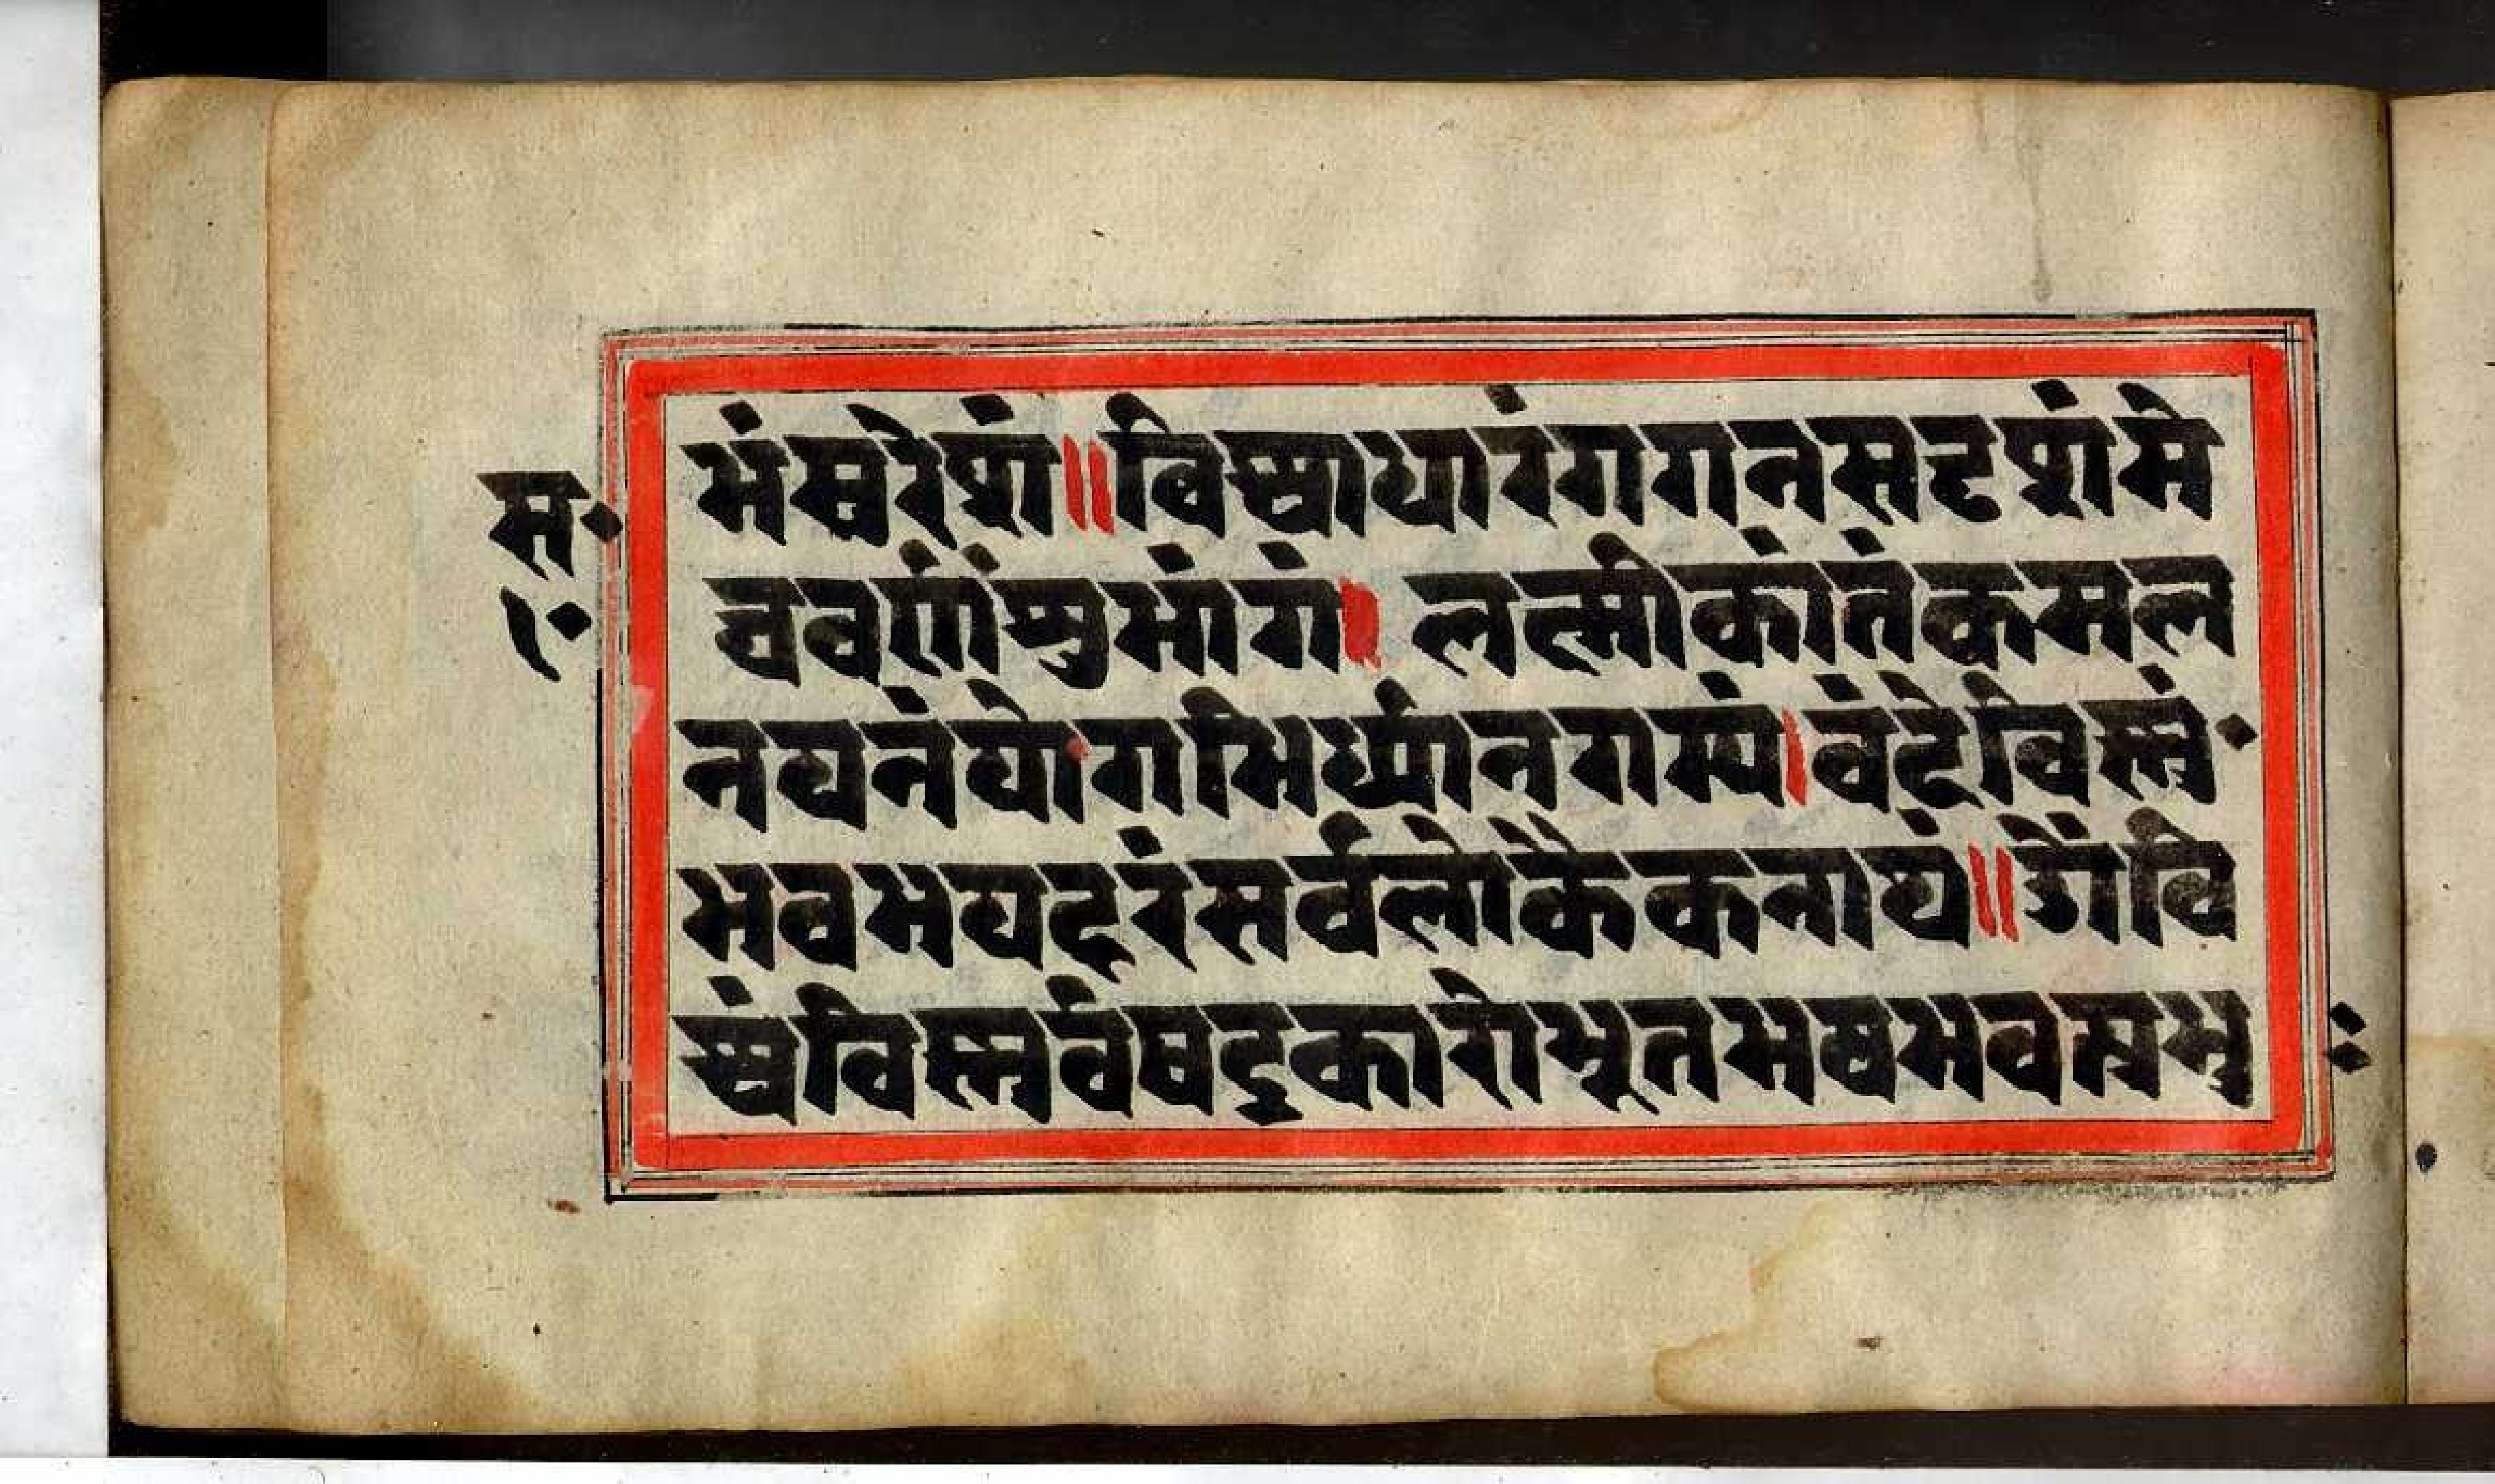 भंसुरेशं॥विश्वाधारंगगनसदृशंमे
घवर्णंशुभांगं। लक्ष्मीकांतंकमल
नयनंयोगभिर्ध्यानगम्यं।वंदेविस्नुं
भवभयहरंसर्वलोकैकनाथं॥ॐवि
श्वंविस्नुर्वषट्कारोभूतभव्यभवत्प्रभु
:
स॰
१॰